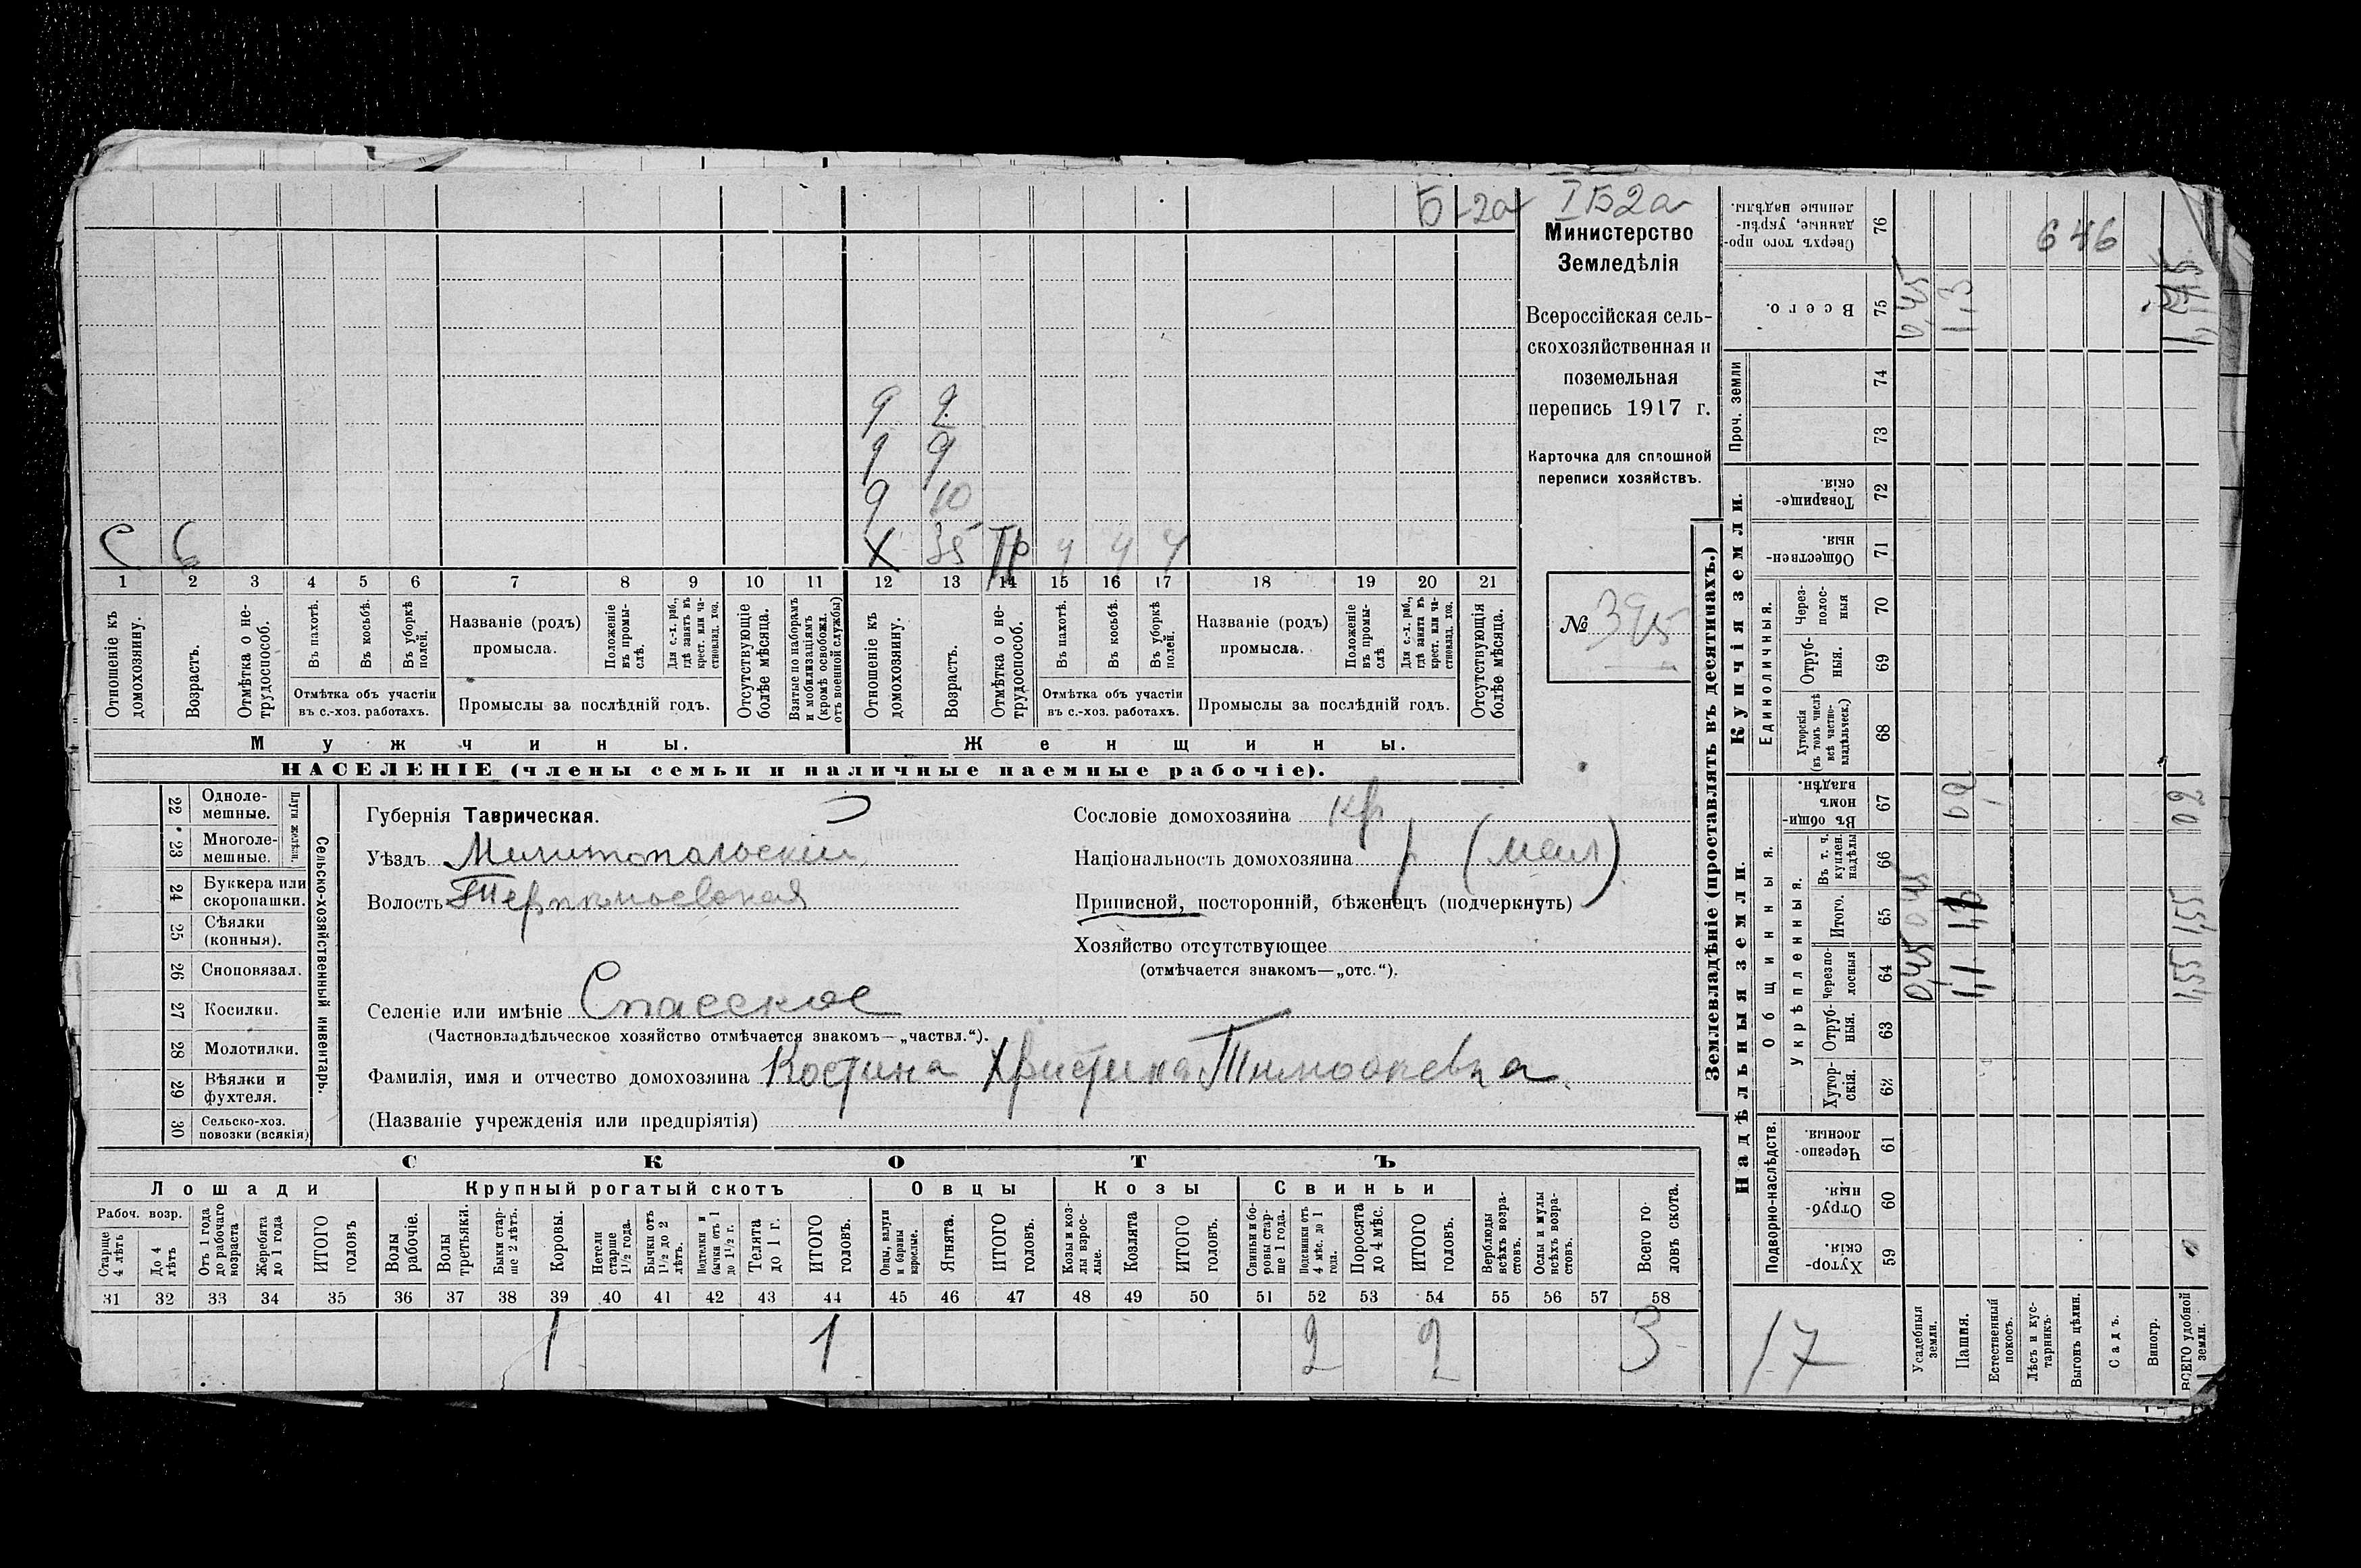 Б-2а
I Б2а
Министерство
Земледѣлія
Всероссійская сель-
скохозяйственная и
поземельная
перепись 1917 г.
Карточка для сплошной
переписи хозяйствъ.
№ 395
д 2
д 9
д 10
С 6
Х 35 Ч Ч Ч
1 2 3 4 5 6 7 8 9 10 11 12 13 14 15 16 17 18 19 20 21
Отношеніе къ домохозяину.
Возрастъ.
Отмѣтка о не-трудоспособ.
Въ пахотѣ.
Въ косьбѣ.
Въ уборкѣ полей.
Отмѣтка объ участіи
въ с.-хоз. работахъ.
Названіе (родъ)
промысла.
Положеніе въ промы-слѣ.
Для с.-х. раб., гдѣ занятъ въ крест. или ча-стновлад. хоз.
Промыслы за послѣдній годъ.
Отсутствующіе болѣе мѣсяца.
Взятые по наборамъ и мобилизаціямъ (кромѣ освобожд. отъ военной службы)
Отношеніе къ домохозяину.
Возрастъ.
Отмѣтка о не-трудоспособ.
Въ пахотѣ.
Въ косьбѣ.
Въ уборкѣ полей.
Отмѣтка объ участіи
въ с.-хоз. работахъ.
Названіе (родъ)
промысла.
Положеніе въ промы-слѣ.
Для с.-х. раб., гдѣ занята въ крест. или ча-стновлад. хоз.
Промыслы за послѣдній годъ.
Отсутствующія болѣе мѣсяца.
Мужчины.
Женщины.
НАСЕЛЕНІЕ (члены семьи и наличные наемные рабочіе).
22 Одноле-мешные.
23 Многоле-мешные.
Плуги желѣзн.
24 Буккера или скоропашки.
25 Сѣялки (конныя).
26 Сноповязал.
27 Косилки.
28 Молотилки.
29 Вѣялки и фухтеля.
30 Сельско-хоз. повозки (всякія)
Сельско-хозяйственный инвентарь.
Губернія Таврическая.
Уѣздъ Мелитопольскій
Волость Терпѣньевская
Селеніе или имѣніе Спасское
(Частновладѣльческое хозяйство отмѣчается знакомъ—„частвл.“).
Фамилія, имя и отчество домохозяина Костина Христина Тимофѣевна
(Названіе учрежденія или предпріятія)
Сословіе домохозяина кр
Національность домохозяина (мал)
Приписной, посторонній, бѣженецъ (подчеркнуть)
Хозяйство отсутствующее
(отмѣчается знакомъ—„отс.“).
СКОТЪ
Лошади
Крупный рогатый скотъ
Овцы
Козы
Свиньи
Рабоч. возр.
Старше 4 лѣтъ
До 4 лѣтъ
Отъ 1 года до рабочаго возраста
Жеребята до 1 года
ИТОГО головъ
Волы рабочіе.
Волы третьяки.
Быки стар-ше 2 лѣтъ.
Коровы.
Нетели старше 1½ года.
Бычки отъ 1½ до 2 лѣтъ.
Подтелки и бычки отъ 1 до 1½ г.
Телята до 1 г.
ИТОГО головъ.
Овцы, валухи и бараны взрослые.
Ягнята.
ИТОГО головъ.
Козы и коз-лы взрос-лые.
Козлята
ИТОГО головъ.
Свиньи и бо-ровы стар-ше 1 года.
Подсвинки отъ 4 мѣс. до 1 года.
Поросята до 4 мѣс.
ИТОГО головъ.
Верблюды всѣхъ возра-стовъ.
Ослы и мулы всѣхъ возра-стовъ.
Всего го-ловъ скота.
31 32 33 34 35 36 37 38 39 40 41 42 43 44 45 46 47 48 49 50 51 52 53 54 55 56 57 58
1 1 2 2 3
Землевладѣніе (проставлять въ десятинахъ.)
Надѣльныя земли.
Купчія земли.
Проч. земли
Подворно-наслѣдств.
Общинныя.
Укрѣпленныя.
Единоличныя.
Хутор-скія. 59
Отруб-ныя. 60
Черезпо-лосныя. 61
Хутор-скія. 62
Отруб-ныя. 63
Черезпо-лосныя 64
Итого. 65
Въ т. ч. куплен. надѣлы 66
Въ общин-номъ владѣн. 67
Хуторскія (въ томъ числѣ всѣ частно-владѣльческ.) 68
Отруб-ныя. 69
Через-полос-ныя 70
Обществен-ныя. 71
Товарище-скія. 72
73
74
Всего. 75
Сверхъ того про-данные, укрѣп-ленные надѣлы. 76
Усадебныя земли.
Пашня.
Естественный покосъ.
Лѣсъ и кус-тарникъ.
Выгонъ цѣлин.
Садъ.
Виногр.
ВСЕГО удобной земли.
0,45 0,45 0,45
1,1 1,3
1,55 1,55
646
17